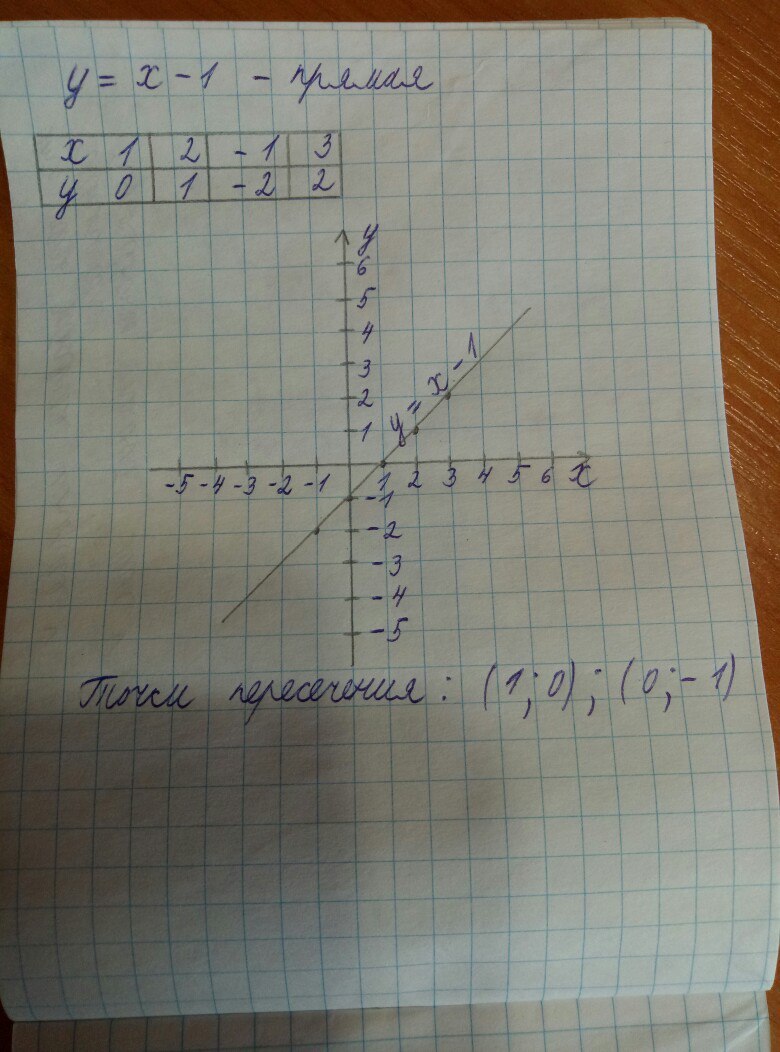 y = x - 1 - прямая
x 1 2 -1 3
y 0 1 -2 2
y
6
5
4
3
2
1
y = x - 1
-5 -4 -3 -2 -1 1 2 3 4 5 6 x
-1
-2
-3
-4
-5
Точки пересечения: (1; 0); (0; -1)